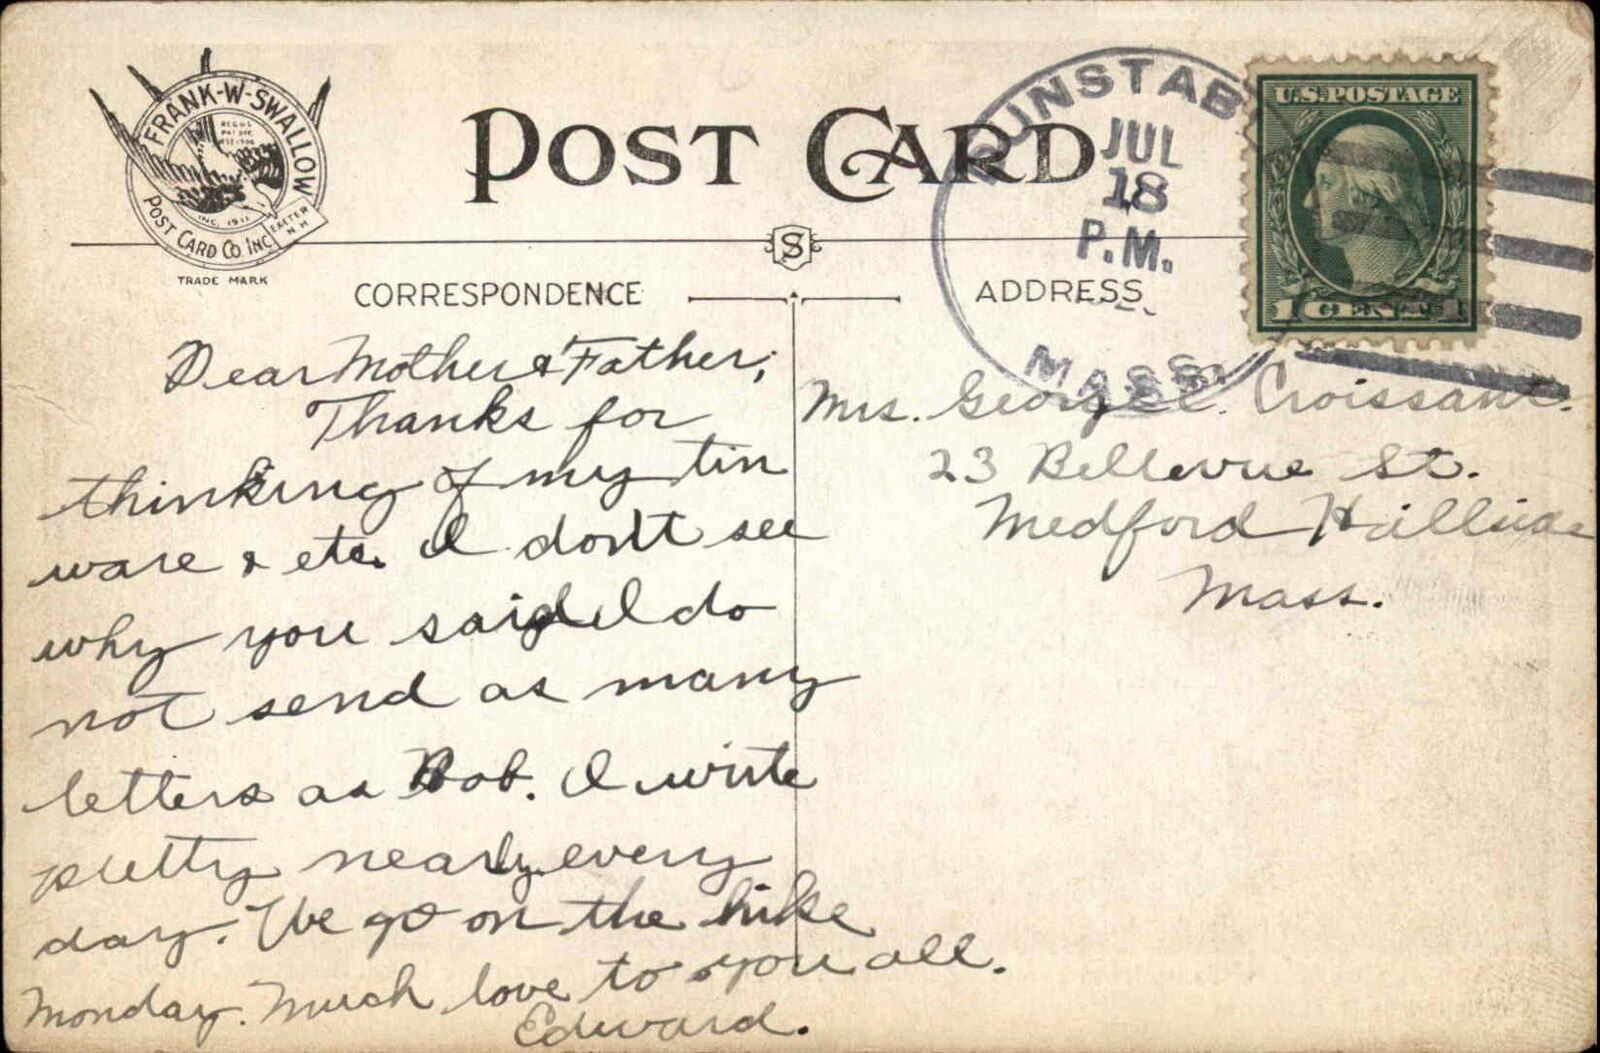 FRANK-W-SWALLOW
POST CARD CO. INC.
INC. 1911
EXETER
N H
TRADE MARK
POST CARD
DUNSTAB
JUL
18
P.M.
MASS.
U.S. POSTAGE
1 CENT 1
S
CORRESPONDENCE
ADDRESS
Dear Mother & Father;
Thanks for
thinking of my tin
ware & etc. I don't see
why you said I do
not send as many
letters as Bob. I write
pretty nearly every
day. We go on the hike
Monday. Much love to you all.
Edward.
Mrs. George E. Croissant.
23 Bellevue St.
Medford Hillside
Mass.